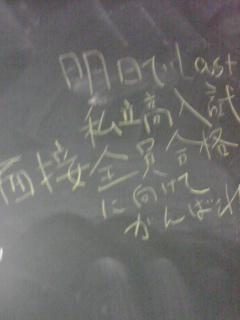 明日でlast
私立高入試
面接全員合格
に向けて
がんばれ